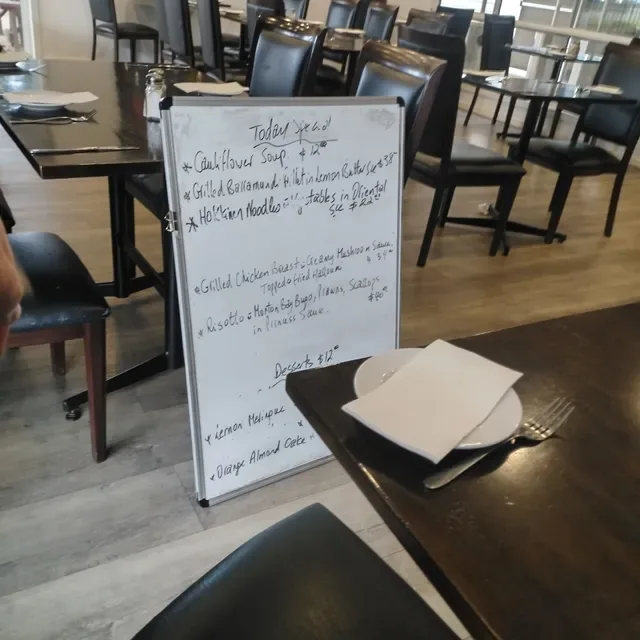 Today Special
* Cauliflower Soup $12.00
* Grilled Barramundi Fillet in Lemon Butter Sce $38
* Hokkien Noodles tables in Oriental
Sce $22
* Grilled Chicken Breast Creamy Mushroom Sauce
Topped Fried Halloumi
* Risotto Morton Bay Bugs, Prawns, Scallops
in Sauce. $40.00
Desserts $12.00
* Lemon Meringue
* Orange Almond Cake